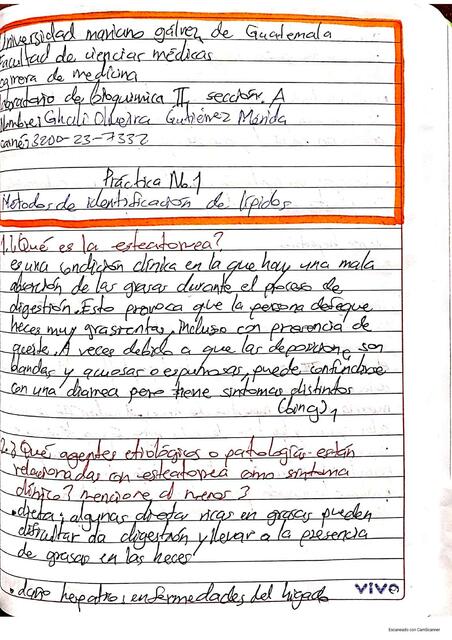 Universidad mariano gálvez de Guatemala
Facultad de ciencias médicas
carrera de medicina
Laboratorio de bioquimica II, sección. A
Nombre: Ghali Oliveira Gutiérrez Mérida
carné: 3200-23-7332
Práctica No. 1
Metodos de identificacion de lípidos
1. ¿Qué es la esteatorrea?
es una condición clínica en la que hay una mala
absorción de las grasas durante el proceso de
digestión. Esto provoca que la persona defeque
heces muy grasientas, incluso con presencia de
aceite. A veces debido a que las deposiciones son
blandas y acuosas o espumosas, puede confundirse
con una diarrea pero tiene síntomas distintos
2. ¿Qué agentes etiológicos o patologías están
relacionadas con esteatorrea como síntoma
clínico? mencione al menos 3
• dieta: algunas dietas ricas en grasas pueden
dificultar la digestión y llevar a la presencia
de grasas en las heces
• daño hepatico: enfermedades del higado
vivo
Escaneado con CamScanner